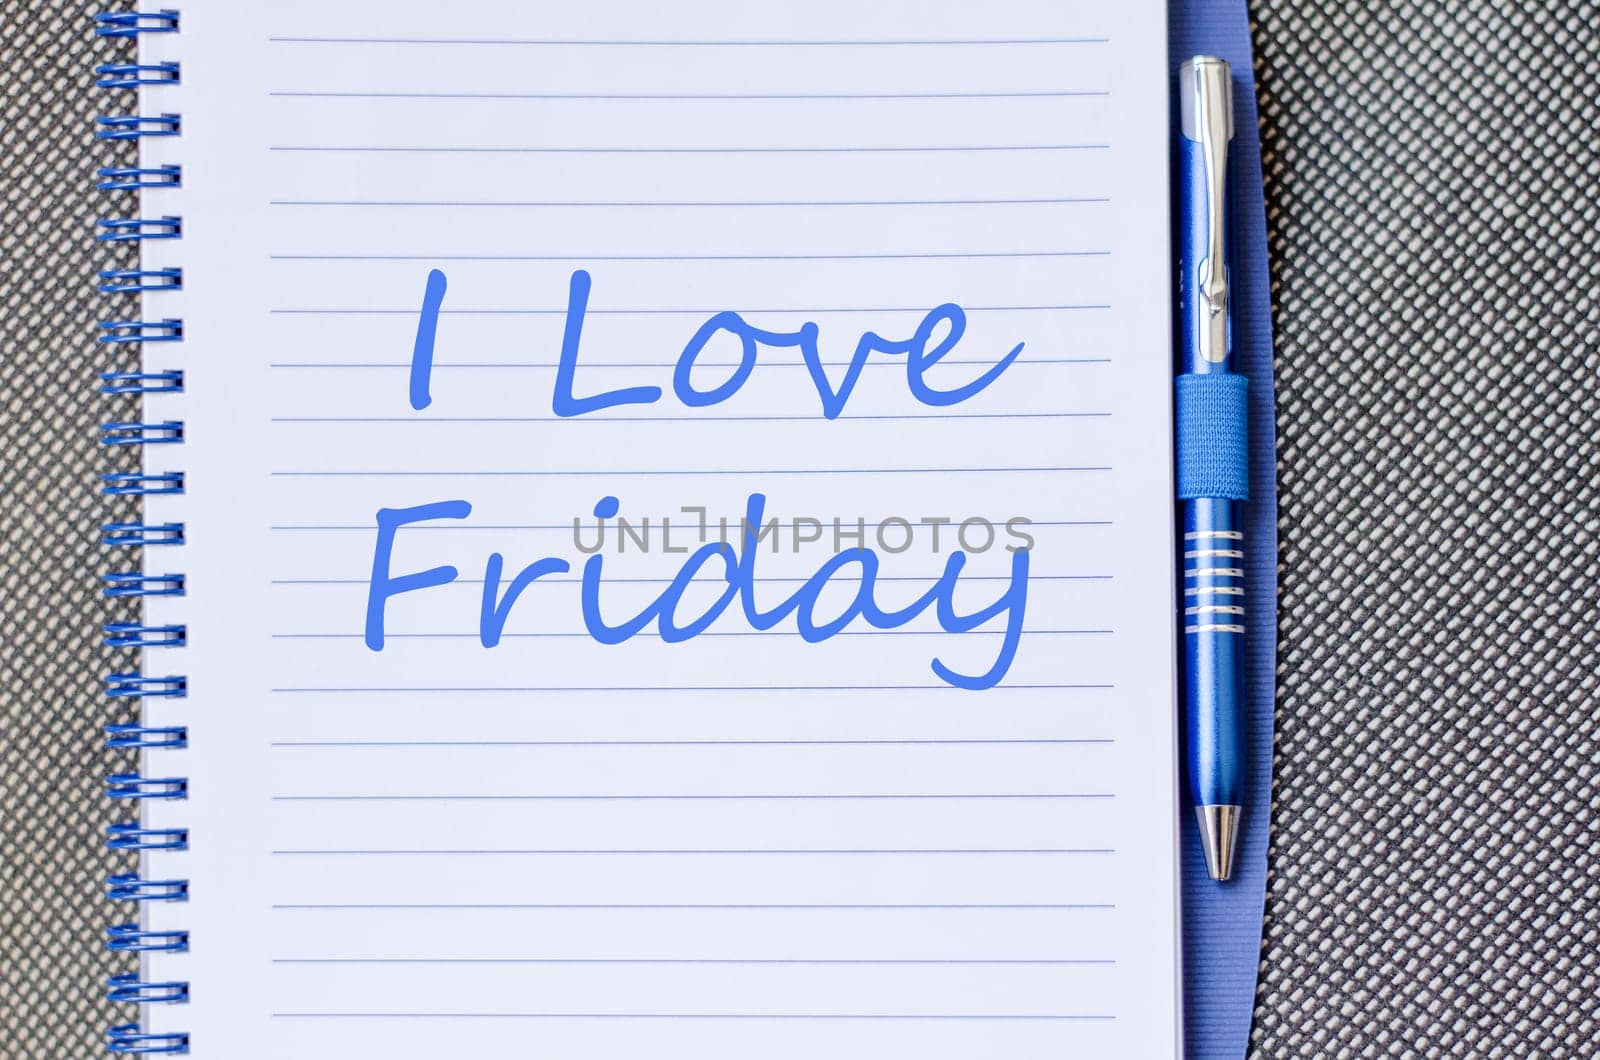 I Love
UNLIMPHOTOS
Friday